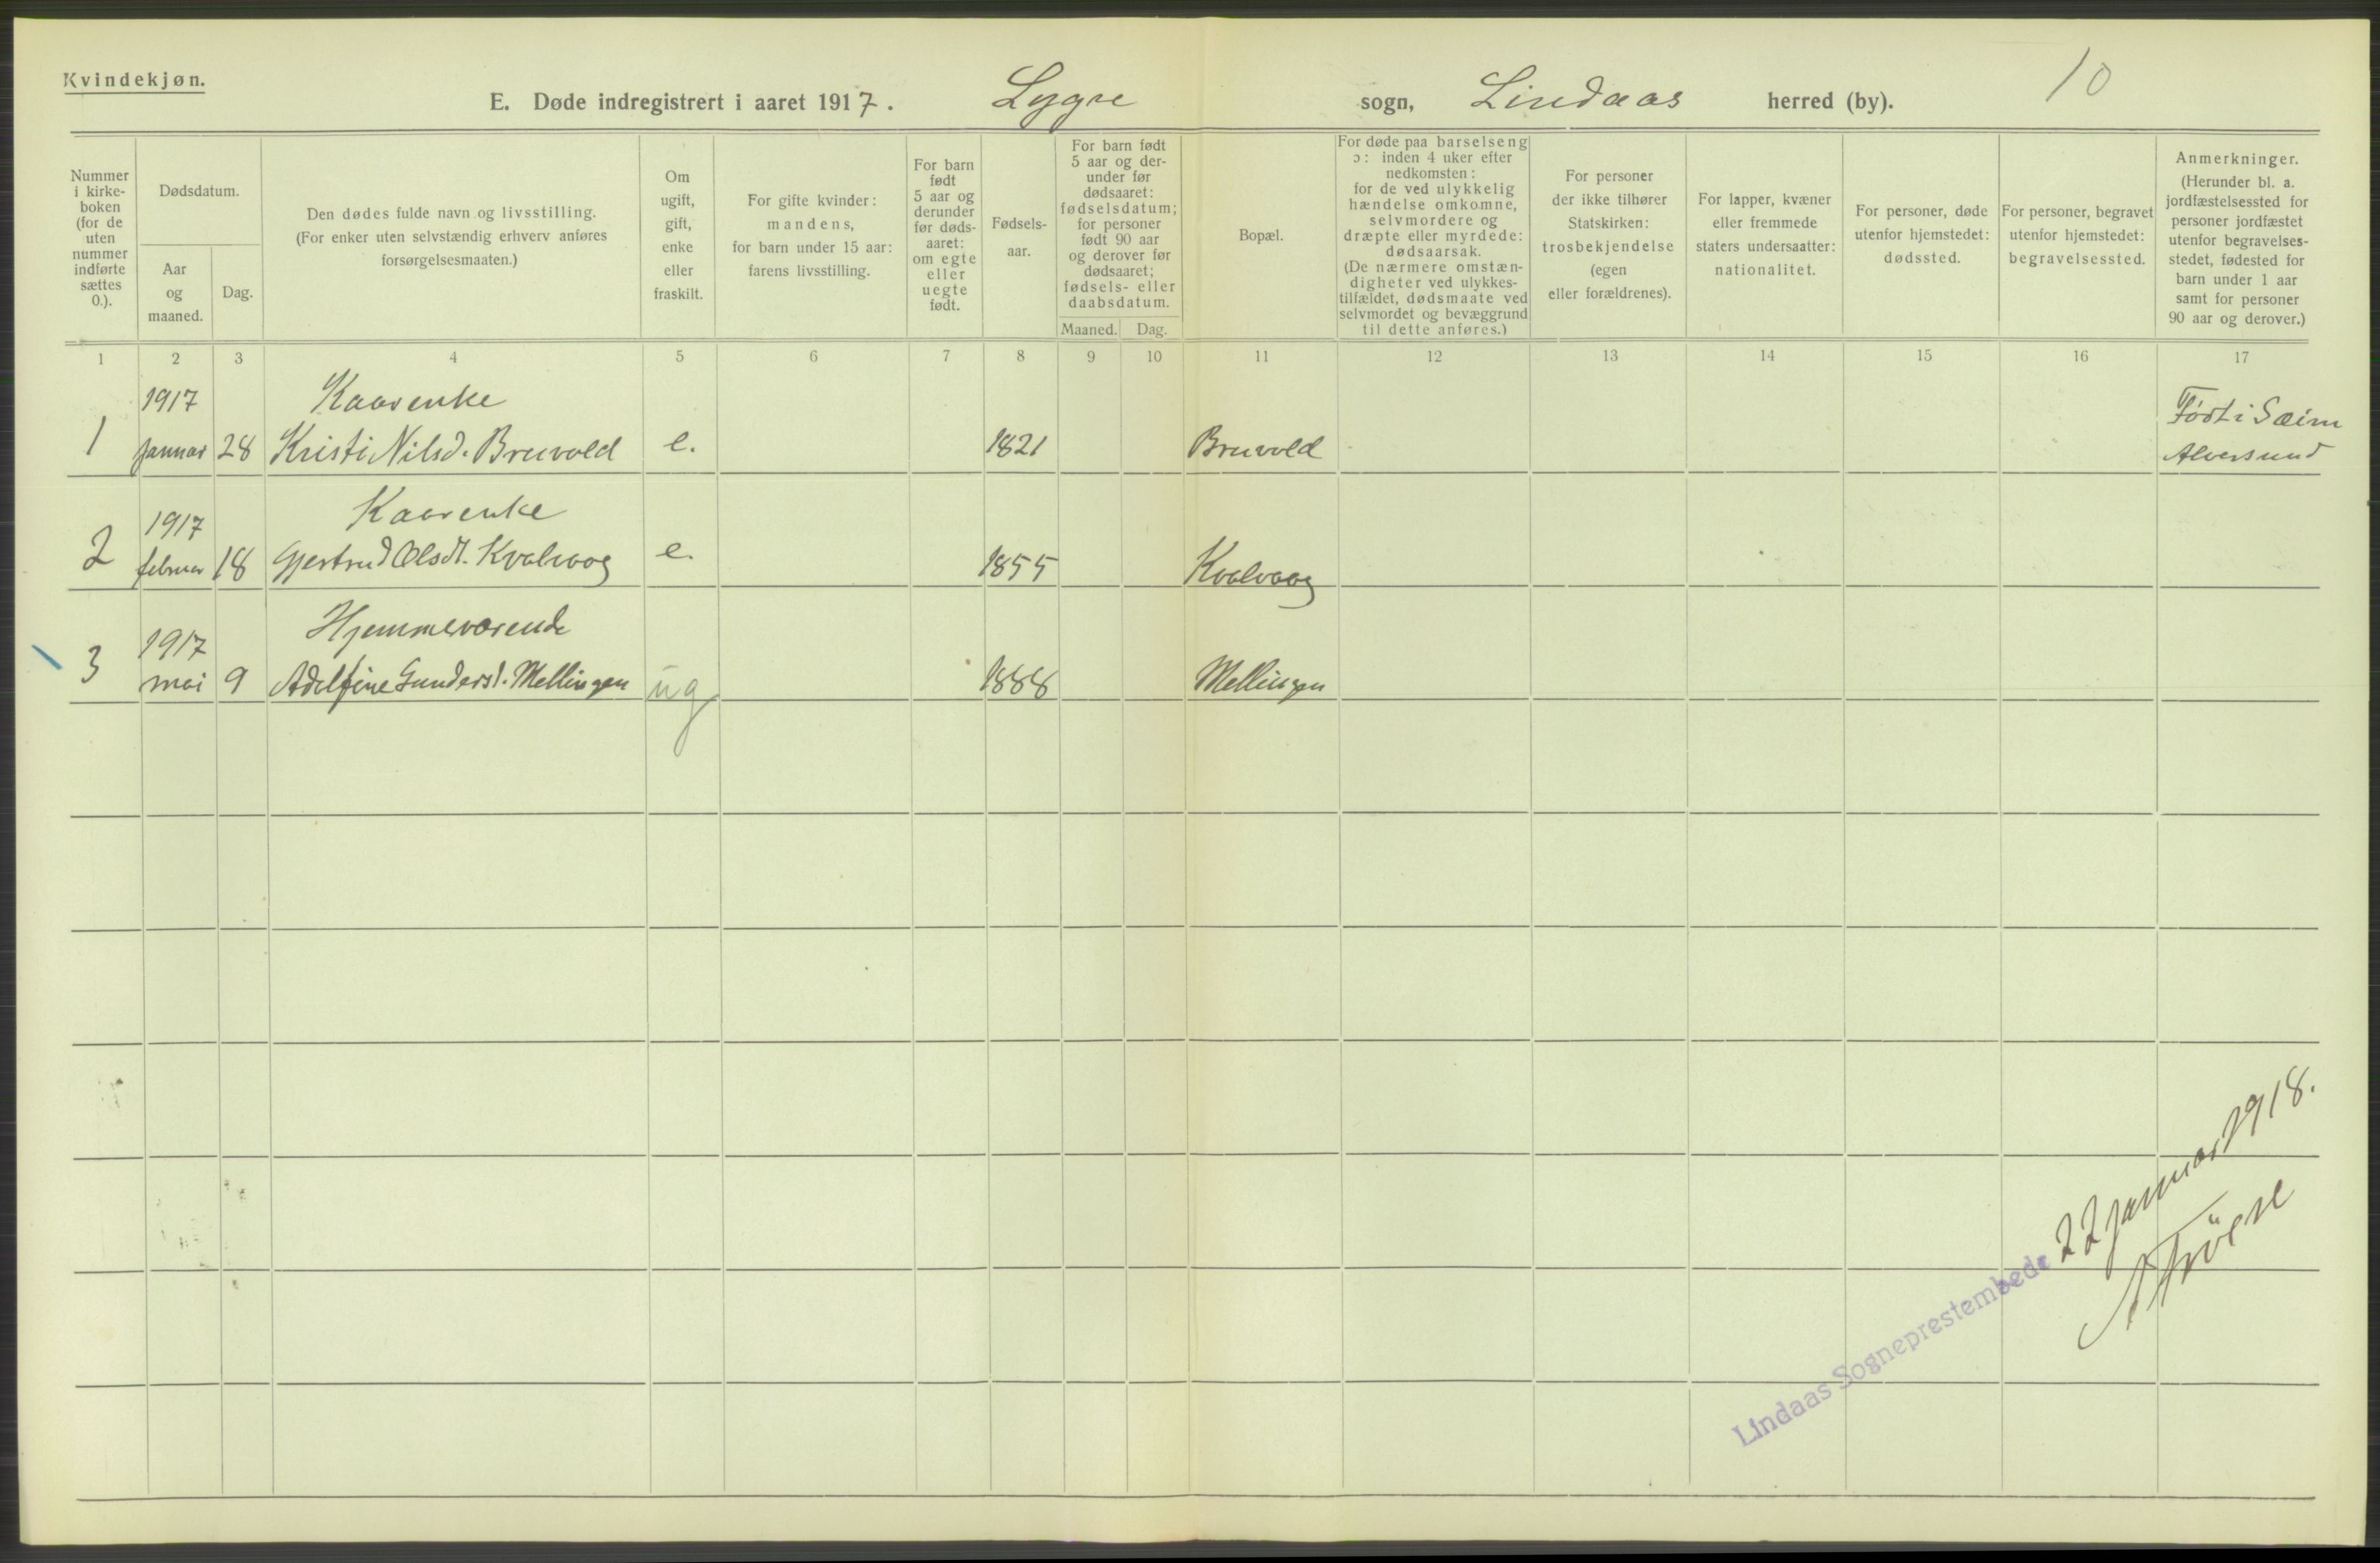 Kvindekjøn.
E. Døde indregistrert i aaret 1917. Lygre sogn, Lindaas herred (by). 10
Nummer
i kirke-
boken
(for de
uten
nummer
indførte
sættes
0.).
Dødsdatum.
Aar
og
maaned.
Dag.
Den dødes fulde navn og livsstilling.
(For enker uten selvstændig erhverv anføres
forsørgelsesmaaten.)
Om
ugift,
gift,
enke
eller
fraskilt.
For gifte kvinder:
mandens,
for barn under 15 aar:
farens livsstilling.
For barn
født
5 aar og
derunder
før døds-
aaret:
om egte
eller
uegte
født.
Fødsels-
aar.
For barn født
5 aar og der-
under før
dødsaaret:
fødselsdatum;
for personer
født 90 aar
og derover før
dødsaaret;
fødsels- eller
daabsdatum.
Maaned. Dag.
Bopæl.
For døde paa barselseng
ɔ: inden 4 uker efter
nedkomsten:
for de ved ulykkelig
hændelse omkomne,
selvmordere og
dræpte eller myrdede:
dødsaarsak.
(De nærmere omstæn-
digheter ved ulykkes-
tilfældet, dødsmaate ved
selvmordet og bevæggrund
til dette anføres.)
For personer
der ikke tilhører
Statskirken:
trosbekjendelse
(egen
eller forældrenes).
For lapper, kvæner
eller fremmede
staters undersaatter:
nationalitet.
For personer, døde
utenfor hjemstedet:
dødssted.
For personer, begravet
utenfor hjemstedet:
begravelsessted.
Anmerkninger.
(Herunder bl. a.
jordfæstelsessted for
personer jordfæstet
utenfor begravelses-
stedet, fødested for
barn under 1 aar
samt for personer
90 aar og derover.)
1 2 3 4 5 6 7 8 9 10 11 12 13 14 15 16 17
1917 Kaarenke Født i Sæim
1 januar 28 Kristi Nilsd. Bruvold e. 1821 Bruvold Alversund
1917 Kaarenke
2 februar 18 Gjertrud Olsdt. Kvalvaag e. 1855 Kvalvaag
1917 Hjemmeværende
3 mai 9 Adelfine Gundersd. Mellingen ug 1888 Mellingen
Lindaas Sogneprestembede 22 januar 1918.